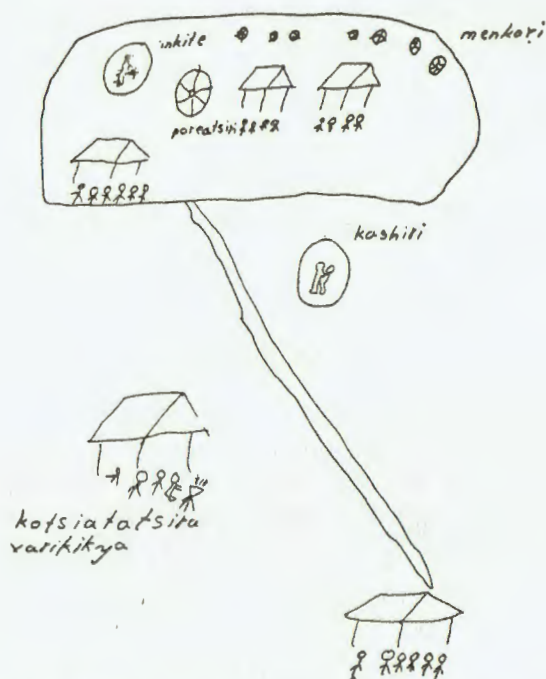 inkite
menkori
poreatsiri
kashiri
kotsiatatsira
varikikya